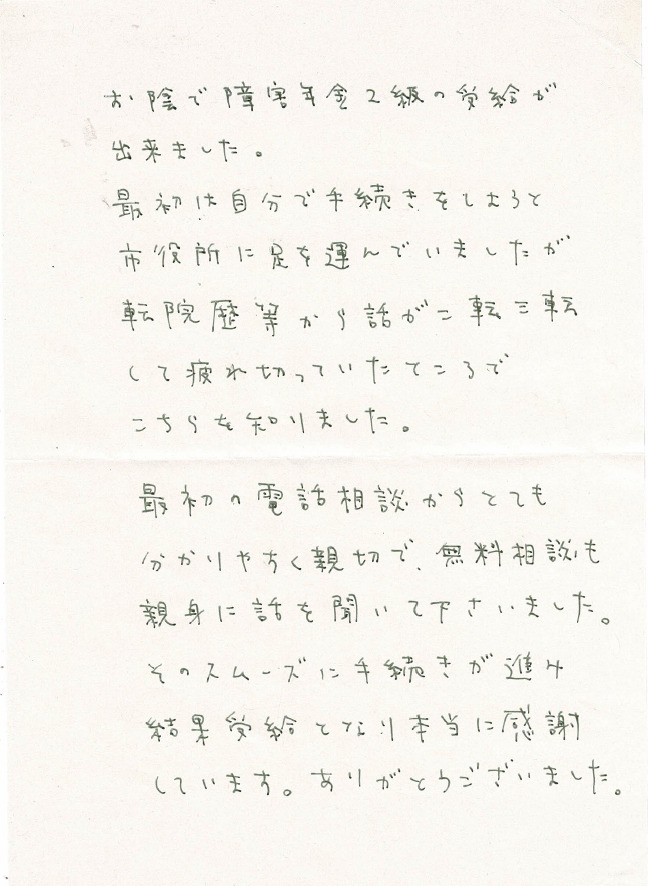 お陰で障害年金2級の受給が
出来ました。
最初は自分で手続きをしようと
市役所に足を運んでいましたが
転院歴等から話が二転三転
して疲れ切っていたところで
こちらを知りました。
最初の電話相談からとても
分かりやすく親切で、無料相談も
親身に話を聞いて下さいました。
そのスムーズに手続きが進み
結果受給となり本当に感謝
しています。ありがとうございました。